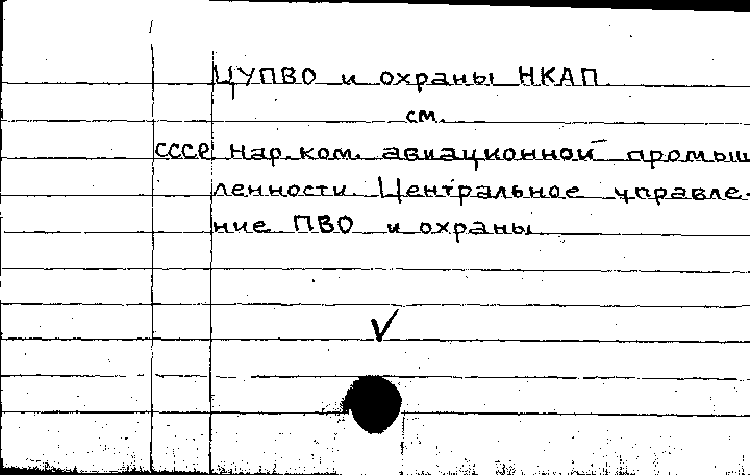 ЦУПВО и охраны НКАП
см.
СССР Нар. ком. авиационной промыш
ленности. Центральное управле-
ние ПВО и охраны